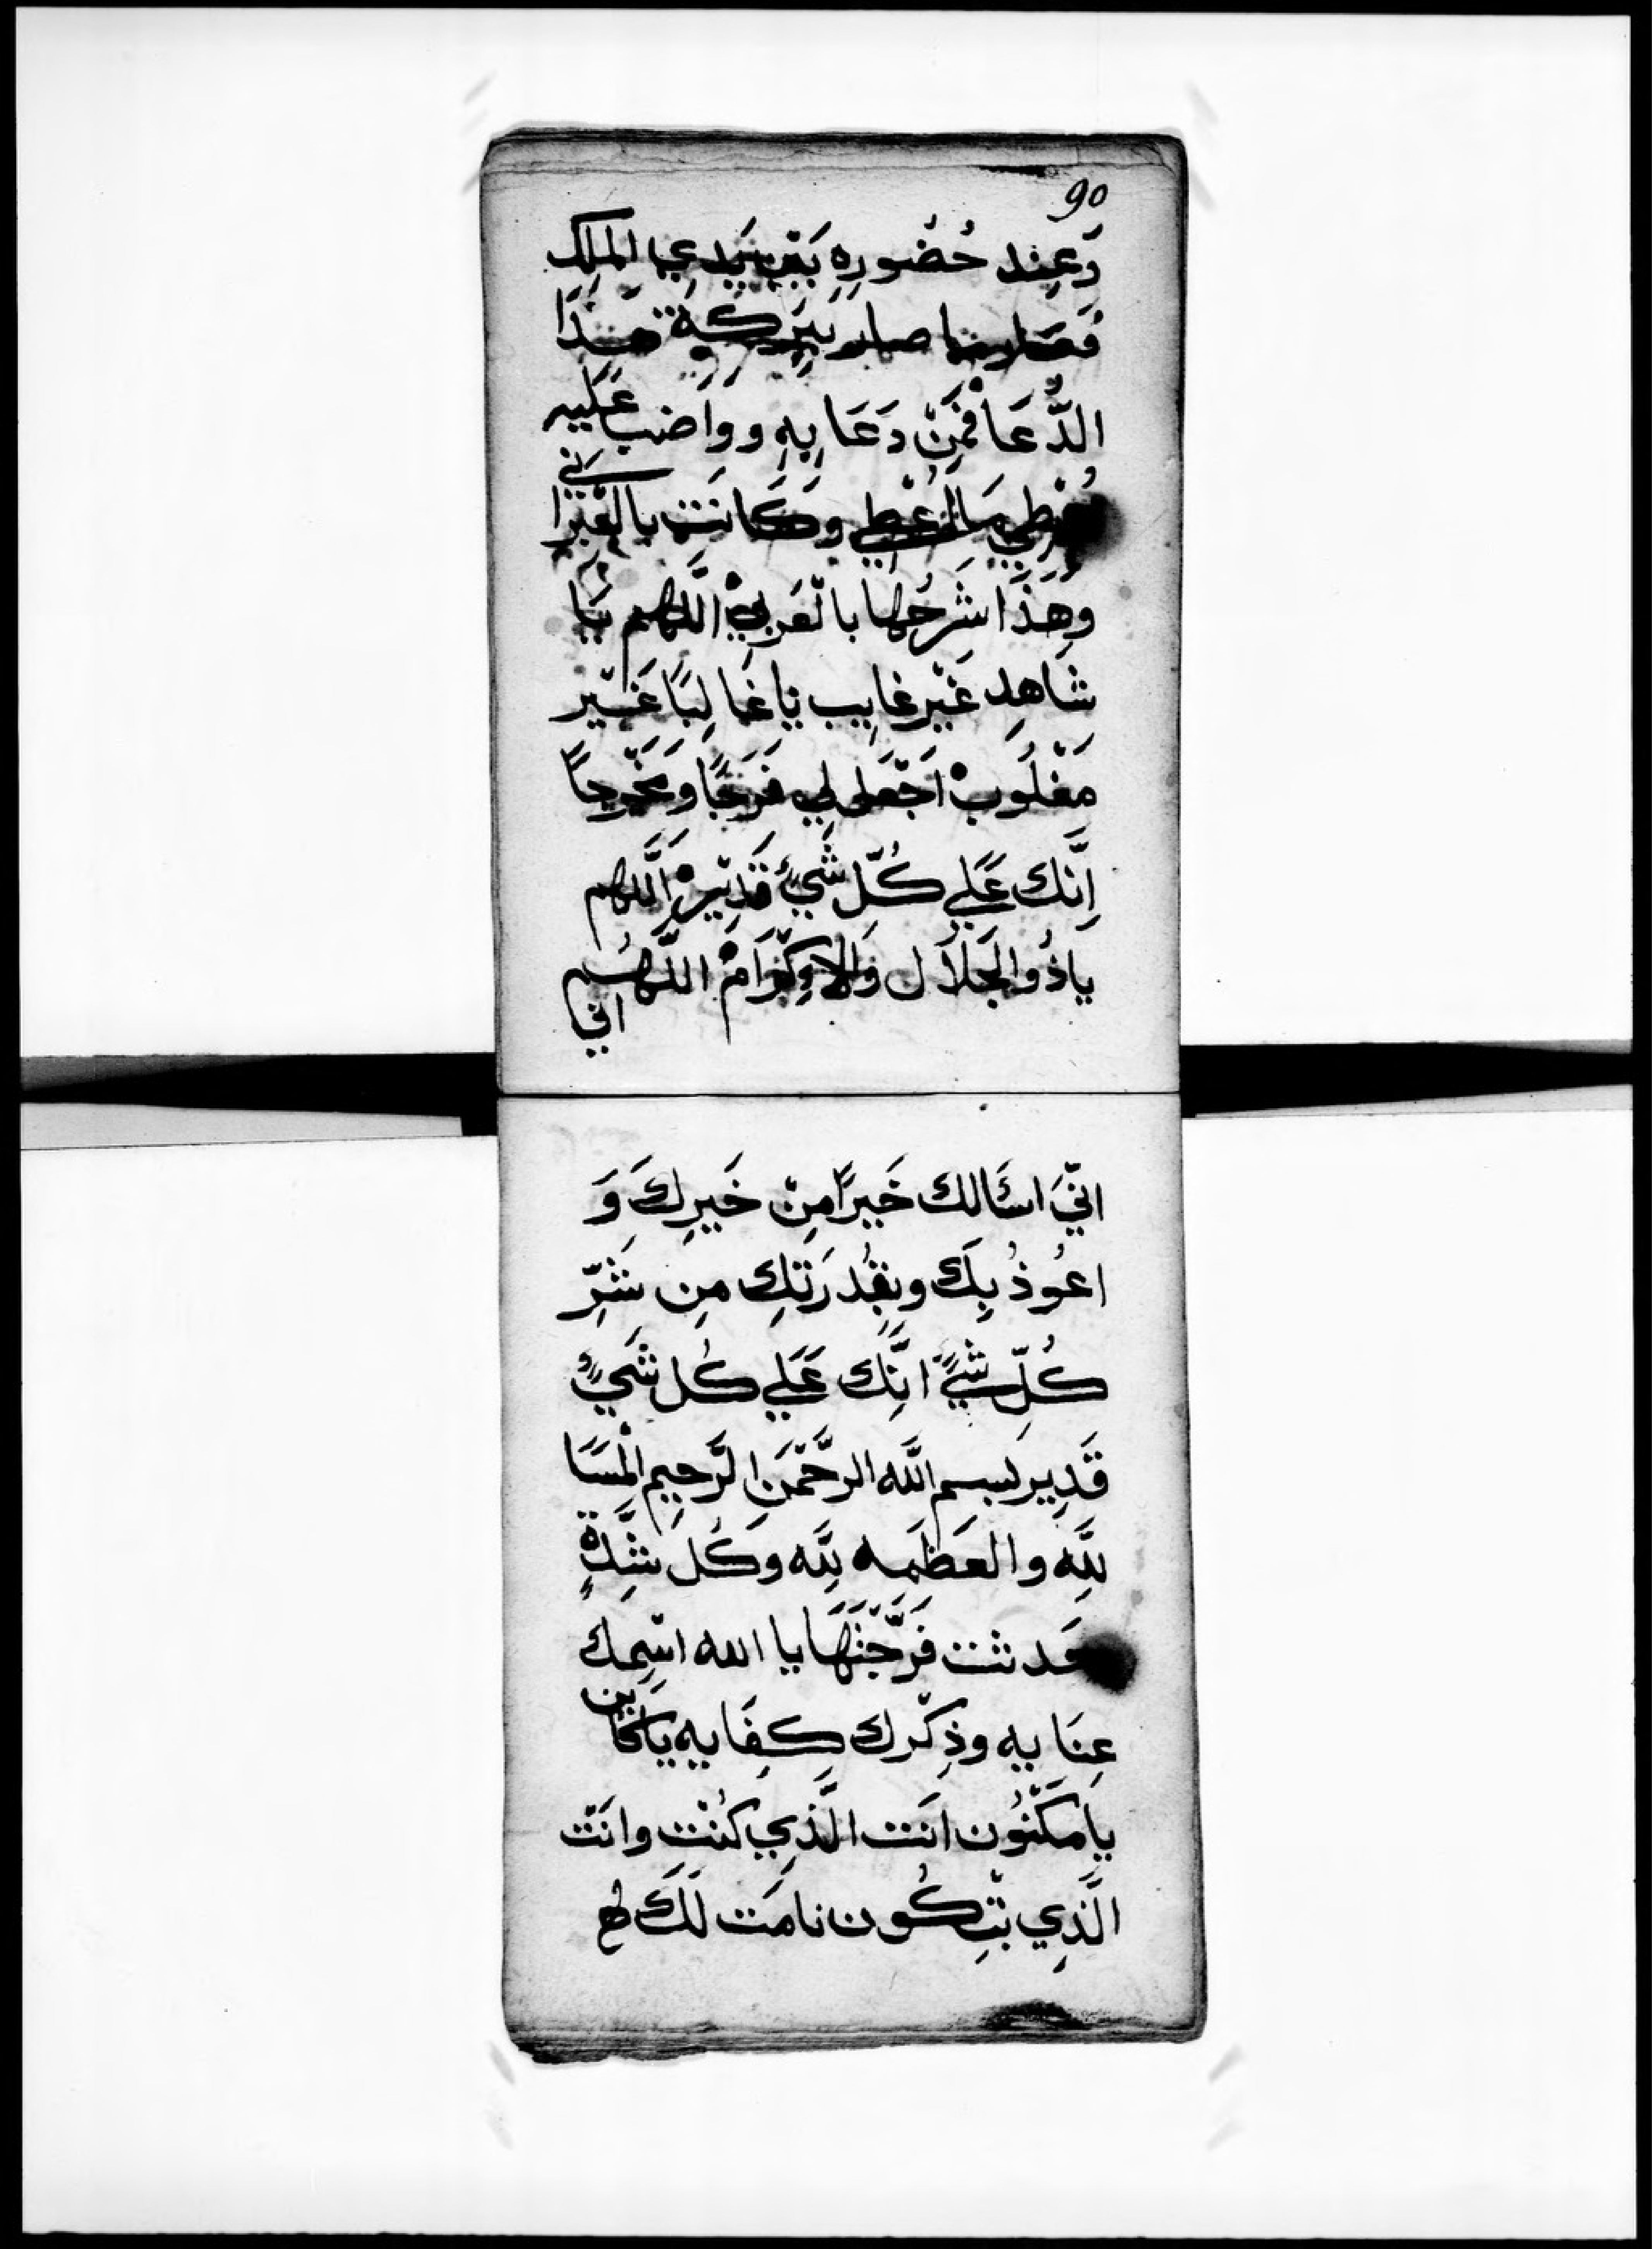 90
وَعِند حُضُورِهِ بَيْن يَدي المِلِك
فَصَار ما صار بِبَرَكَةِ هَذَا
الدُّعَا فَمَنْ دَعَا بِهِ وواضب عَلَيه
يُعْطِي مَا اُعْطِي وكَانَت بالعْبَراني
وهَذَا شَرحُها بالْعَرَبيْ اللَّهم يَا
شَاهِد غَيْر غايِب يا غَالِبًا غَيْر
مَغْلُوبْ اَجْعَل لي فَرَجًا وَمَخْرجاً
اِنَّك عَلَي كُلّ شَيءٍ قَدِيْرْ اَللَّهم
يا ذُو الجَلاَل وَالاِكْرَامْ اللَّهُم
اني
انّيَ اسَالك خَيرًا مِنْ خَيرِكَ وَ
اعُوذُ بِكَ وبِقُدرَتِك مِن شَرِّ
كُلِّ شَيًٍ انَّك عَلَي كُل شَيءٍ
قَدِير بسم اللَّه الرَّحْمَن الرَّحِيم الْمَسَا
لِلَّه والعَظَمَه لِلَّه وكُل شِدَّةٍ
حَدثت فَرَّجْتَهَا يا الله اسْمِك
عِنَايه وذِكْرك كِفَايه يَاكَاين
يا مَكْنُون اَنت الَّذِي كُنْت وانَت
الَّذِي بْتِكُون نامَت لَكَ